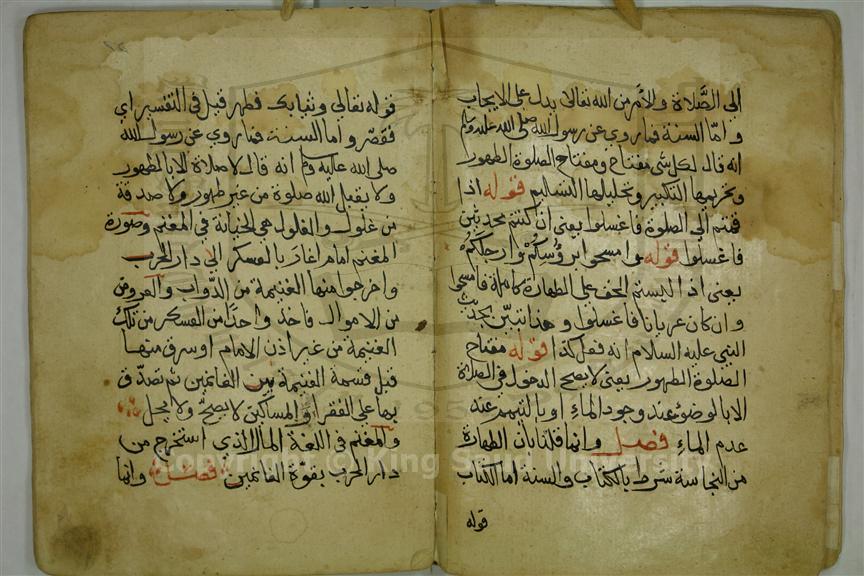 الى الصَّلاة والأمر من الله تعالى يدل على الايجاب
و امّا السنة فما روي عن رسول الله صلى الله عليه وسلم
انه قال لكل شى مفتاح ومفتاح الصلوة الطهور
وتحريمها التكبير وتحليلها التسليم قوله اذا
قمتم الى الصلوة فاغسلوا يعنى ان كنتم محدثين
فاغسلوا قوله وامسحوا برؤسكم وارجلكم
يعنى اذا لبستم الخف على الطهارة كاملة فامسحوا
وان كان عريانا فاغسلوا وهذا تبيّن بحديث
النبي عليه السلام انه فعل كذا قوله مفتاح
الصلوة الطهور يعنى لا يصح الدخول في الصلاة
الا بالوضوء عند وجود الماء او بالتيمم عند
عدم الماء فصل وانما قلنا بان الطهارة
من النجاسة شرط بالكتاب والسنة اما الكتاب
قوله
قوله تعالى وثيابك فطهر قيل في التفسير اي
فقصّر واما السنة فما روي عن رسول الله
صلى الله عليه وسلم انه قال لا صلاة الا بالطهور
ولا يقبل الله صلوة من غير طهور ولا صدقة
من غلول والغلول هي الخيانة في المغنم وصورة
المغنم امام اغار بالعسكر الى دار الحرب
واخرجوا منها الغنيمة من الدّواب والعروض
من الاموال فاخذ واحدا من العسكر من تلك
الغنيمة من غير اذن الامام او سرق منها
قبل قسمة الغنيمة بين الغانمين ثم تصدّق
بها على الفقراء والمساكين لا يصحّ ولا يحل
والمغنم في اللغة المال الذي استخرج من
دار الحرب بقوّة الغانمين فصل وانما
Copyright © King Saud University